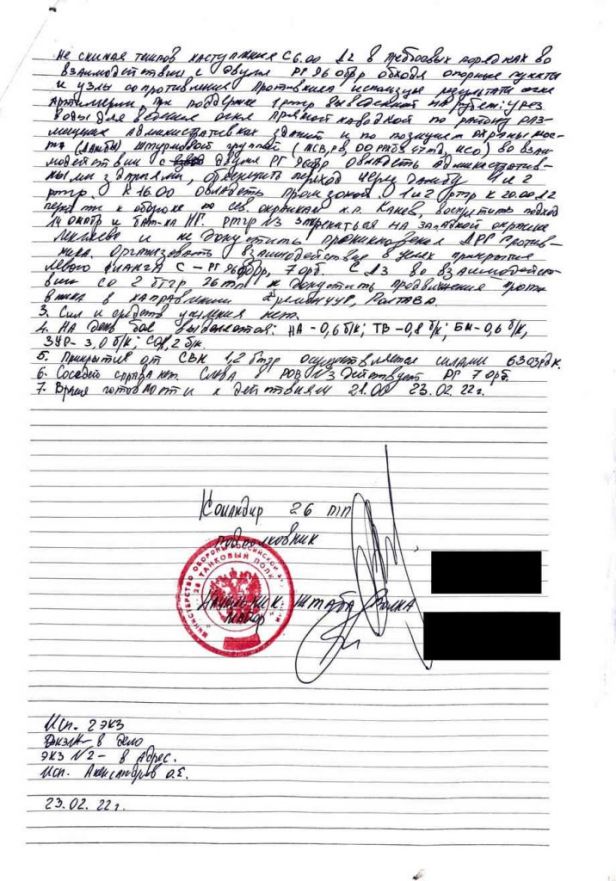 не снижая темпов наступления С 6.00 Д2 в предбоевых порядках во
взаимодействии с двумя РГ 96 обр обходя опорные пункты
и узлы сопротивления противника используя результаты огня
Артиллерии, при поддержке 1 ртгр на рубеж: урез
воды для ведения огня прямой наводкой по району раз-
мещения административных зданий и по позициям охраны мос-
та (дамбы) штурмовой группой во взаи-
модействии с двумя РГ 96 обр овладеть административ-
ными зданиями, обеспечить переход через дамбу 1 и 2
К 16.00 овладеть 1 и 2 к 20.00 Д2
перейти к обороне по сев. окраинам н.п. Канев, воспретить подход
14 омбр и бат-на НГ. Д3 закрепиться на западной окраине
и не допустить проникновения ДРГ против-
ника. Организовать взаимодействие в целях прикрытия
левого фланга с - РГ 96 обр, 7 орб. С Д3 во взаимодейст-
вии со 2 бтгр 26 тп не допустить продвижения проти-
вника в направлении Кременчуг, Полтава.
3. Сил и средств усиления нет.
4. На день боя выделяется: НА - 0,6 б/к; ТВ - 0,8 б/к; БМ - 0,6 б/к,
ЗУР - 3,0 б/к; 2 б/к.
5. Прикрытие от СВН 1,2 бтгр осуществляется силами 63 озрдн.
6. Соседей справа нет. Слева в РОВ №3 действует РГ 7 орб.
7. Время готовности к действиям 21.00 23.02.22г.
Командир 26 тп
подполковник
МИНИСТЕРСТВО ОБОРОНЫ РОССИЙСКОЙ
ТАНКОВЫЙ ПОЛК
Начальник штаба полка
майор
Исп. 2 экз
в дело
экз №2 - в адрес.
Исп. Александров О.Е.
23.02.22г.